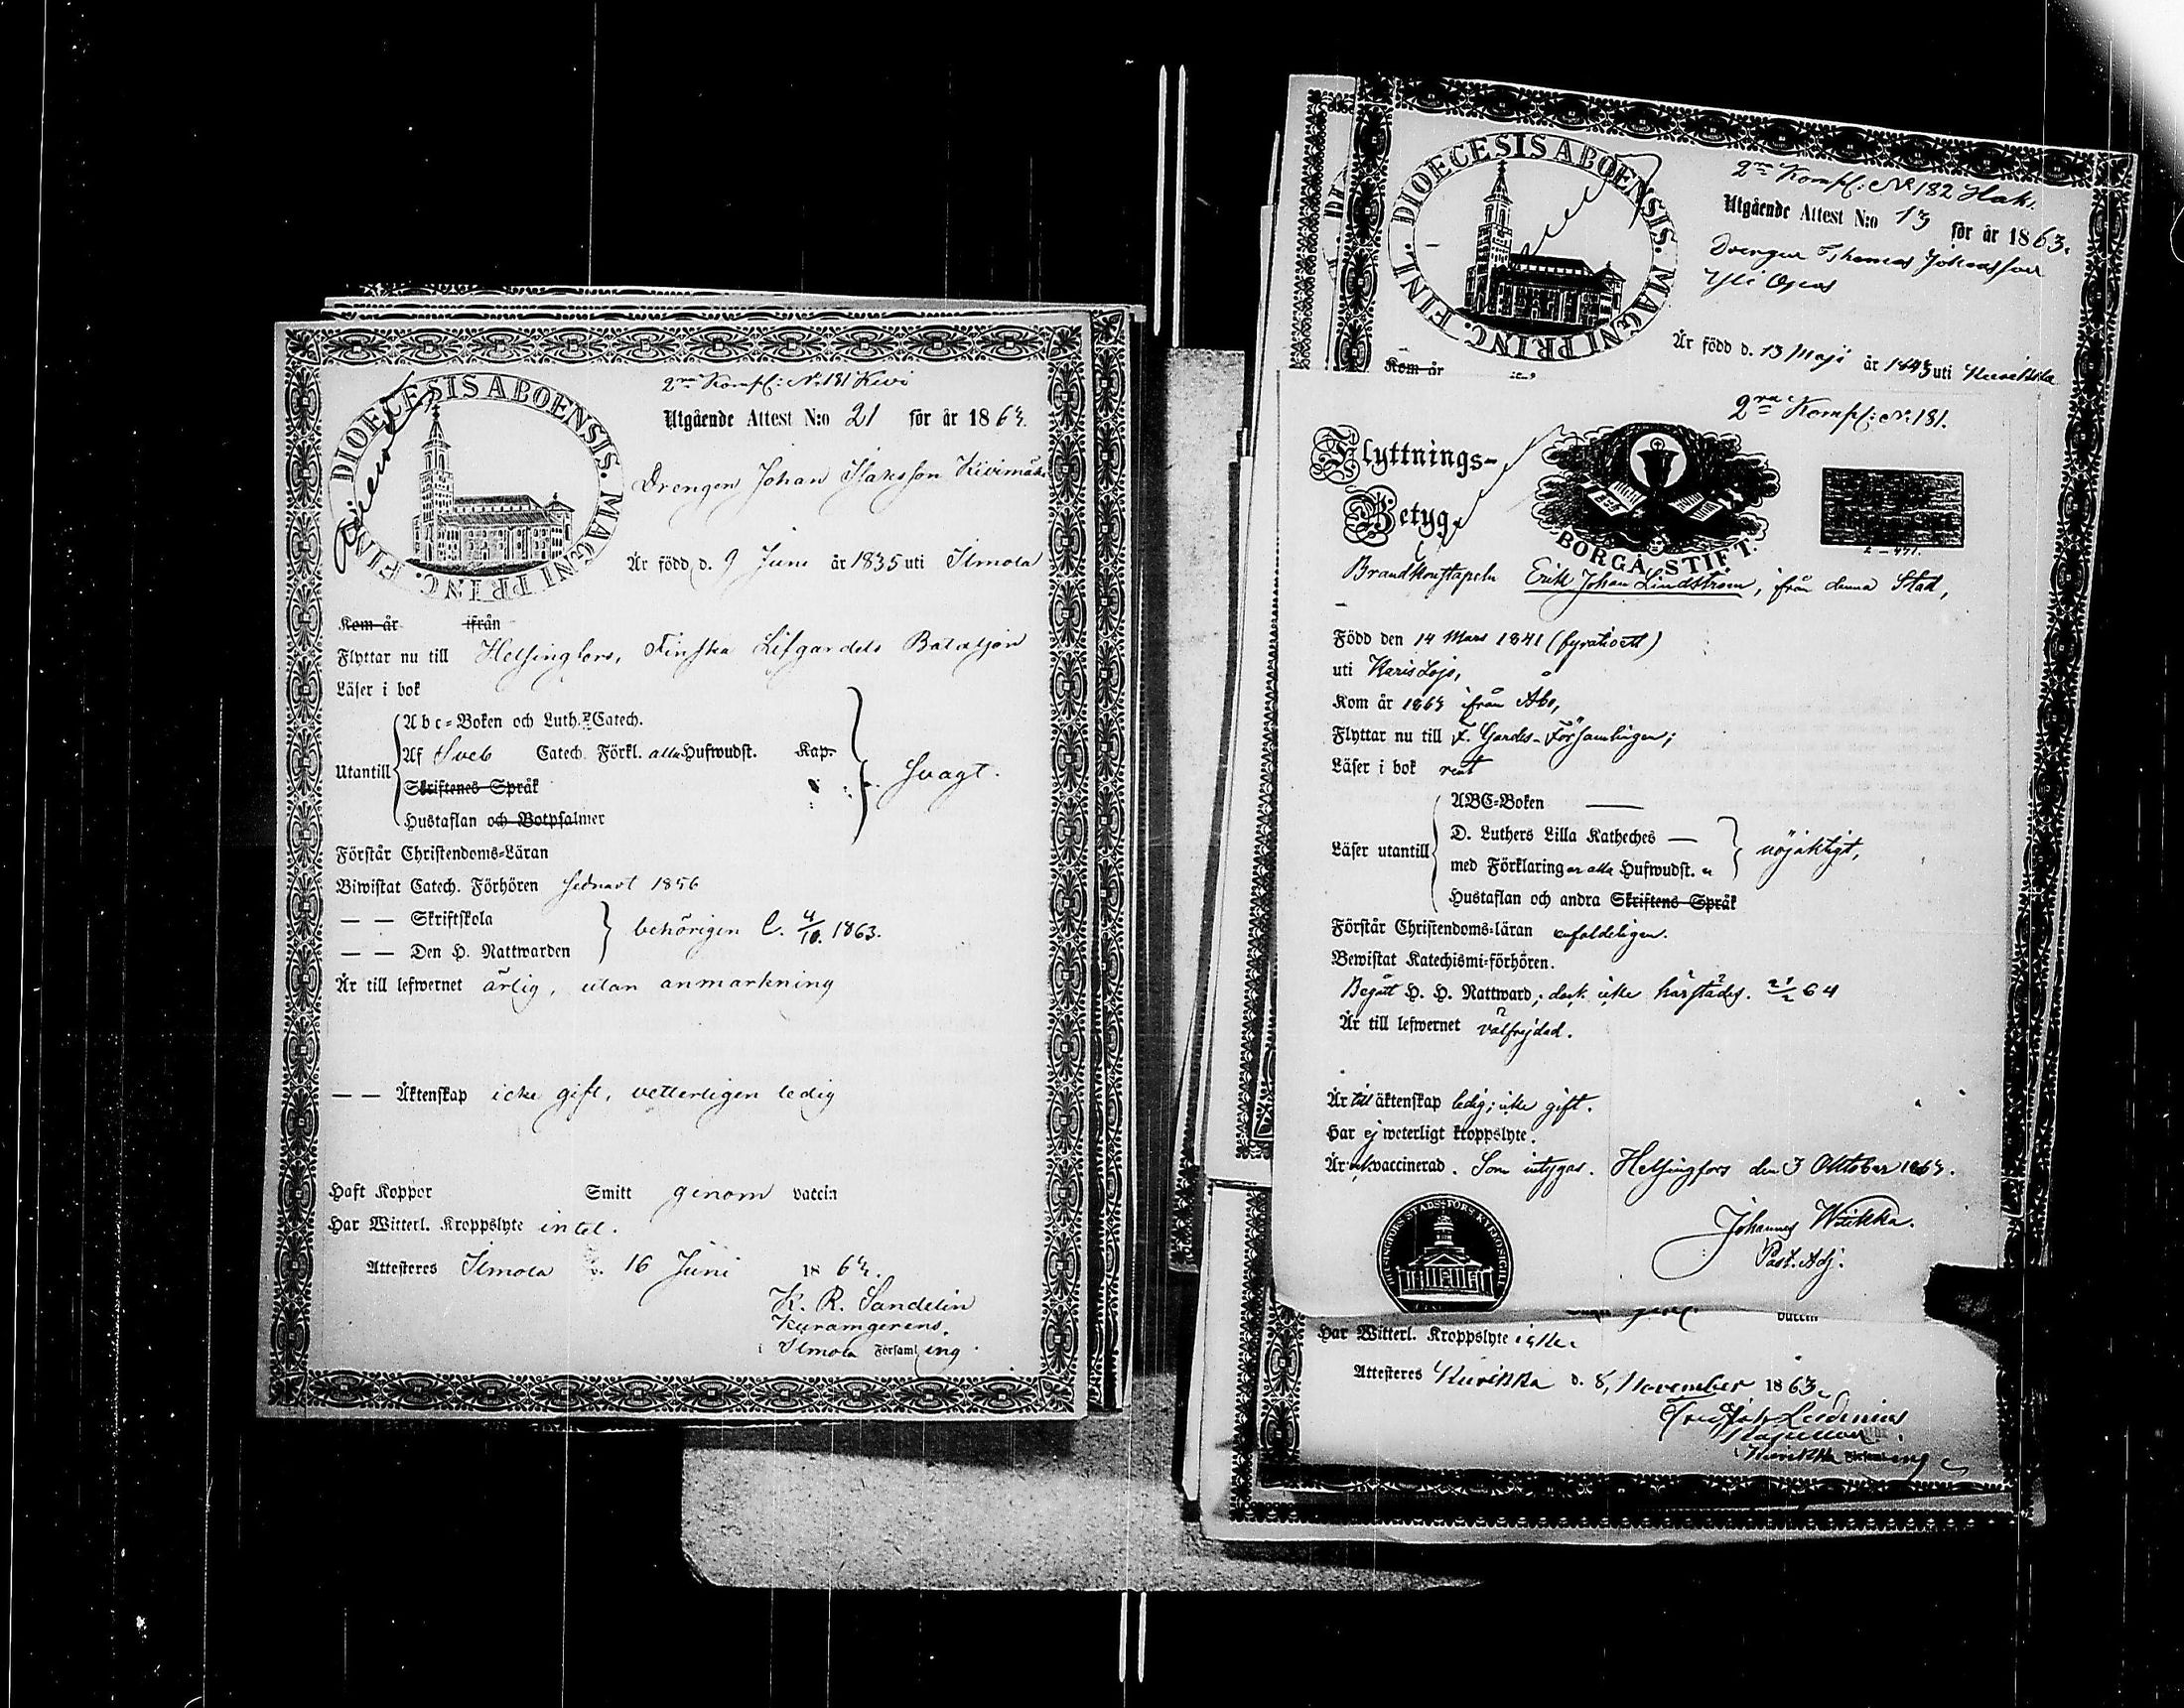 DIOECESIS ABOENSIS. MAGNI PRINC. FINL.
2ra Kompl: No 181 Kivi
Utgående Attest N:o 21 för år 1864.
Drengen Johan Isaksson Kivimäki
Är född d. 9 Juni år 1835 uti Ilmola
Kom år ifrån
Flyttar nu till Helsingfors, Finska Lifgardets Bataljon
Läser i bok
Abc-Boken och Luth. Catech.
Utantill Af Sveb Catech. Förkl. alla Hufwudst. Kap.
Skriftenes Språk
Hustaflan och Botpsalmer
svagt.
Förstår Christendoms-Läran
Biwistat Catech. Förhören sednast 1856
— — Skriftskola
— — Den H. Nattwarden
behörigen C. 4/10. 1863.
Är till lefwernet ärlig, utan anmärkning
— — Äktenskap icke gift, vetterligen ledig
Haft Koppor Smitt genom vaccin
Har Witterl. Kroppslyte intet.
Attesteres Ilmola d. 16 Juni 1864.
K. R. Sandelin
Ilmola Församling.
DIOECESIS ABOENSIS. MAGNI PRINC. FINL.
2ra Kompl: No 182 Hak.
Utgående Attest N:o 13 för år 1863.
Drengen Thomas Johansson
Yli
Är född d. 13 Maji år 1843 uti Kurikka
Kom år
2ra Kompl: No 181.
Flyttnings-
Betyg.
BORGÅ STIFT.
Brandkonstapeln Erik Johan Lindström, ifrån denna Stad,
Född den 14 Mars 1841 (fyrationett)
uti Karislojo,
Kom år 1864 ifrån Åbo,
Flyttar nu till F. Gardes-Församlingen;
Läser i bok rent
ABC-Boken —
D. Luthers Lilla Katheches —
Läser utantill med Förklaring af alla Hufwudst.
Hustaflan och andra Skriftens Språk
nöjaktigt,
Förstår Christendoms-läran enfaldeligen.
Bewistat Katechismi-förhören.
Begått H. H. Nattward; dock icke härstädes. 21/2 64
Är till lefwernet välfrejdad.
Är till äktenskap ledig; icke gift.
Har ej weterligt kroppslyte.
Är vaccinerad. Som intygas. Helsingfors den 3 Oktober 1864.
Johannes Witikka.
Past. Adj.
vaccin
Har Witterl. Kroppslyte icke.
Attesteres Kurikka d. 8, November 1863.
Kurikka Församling